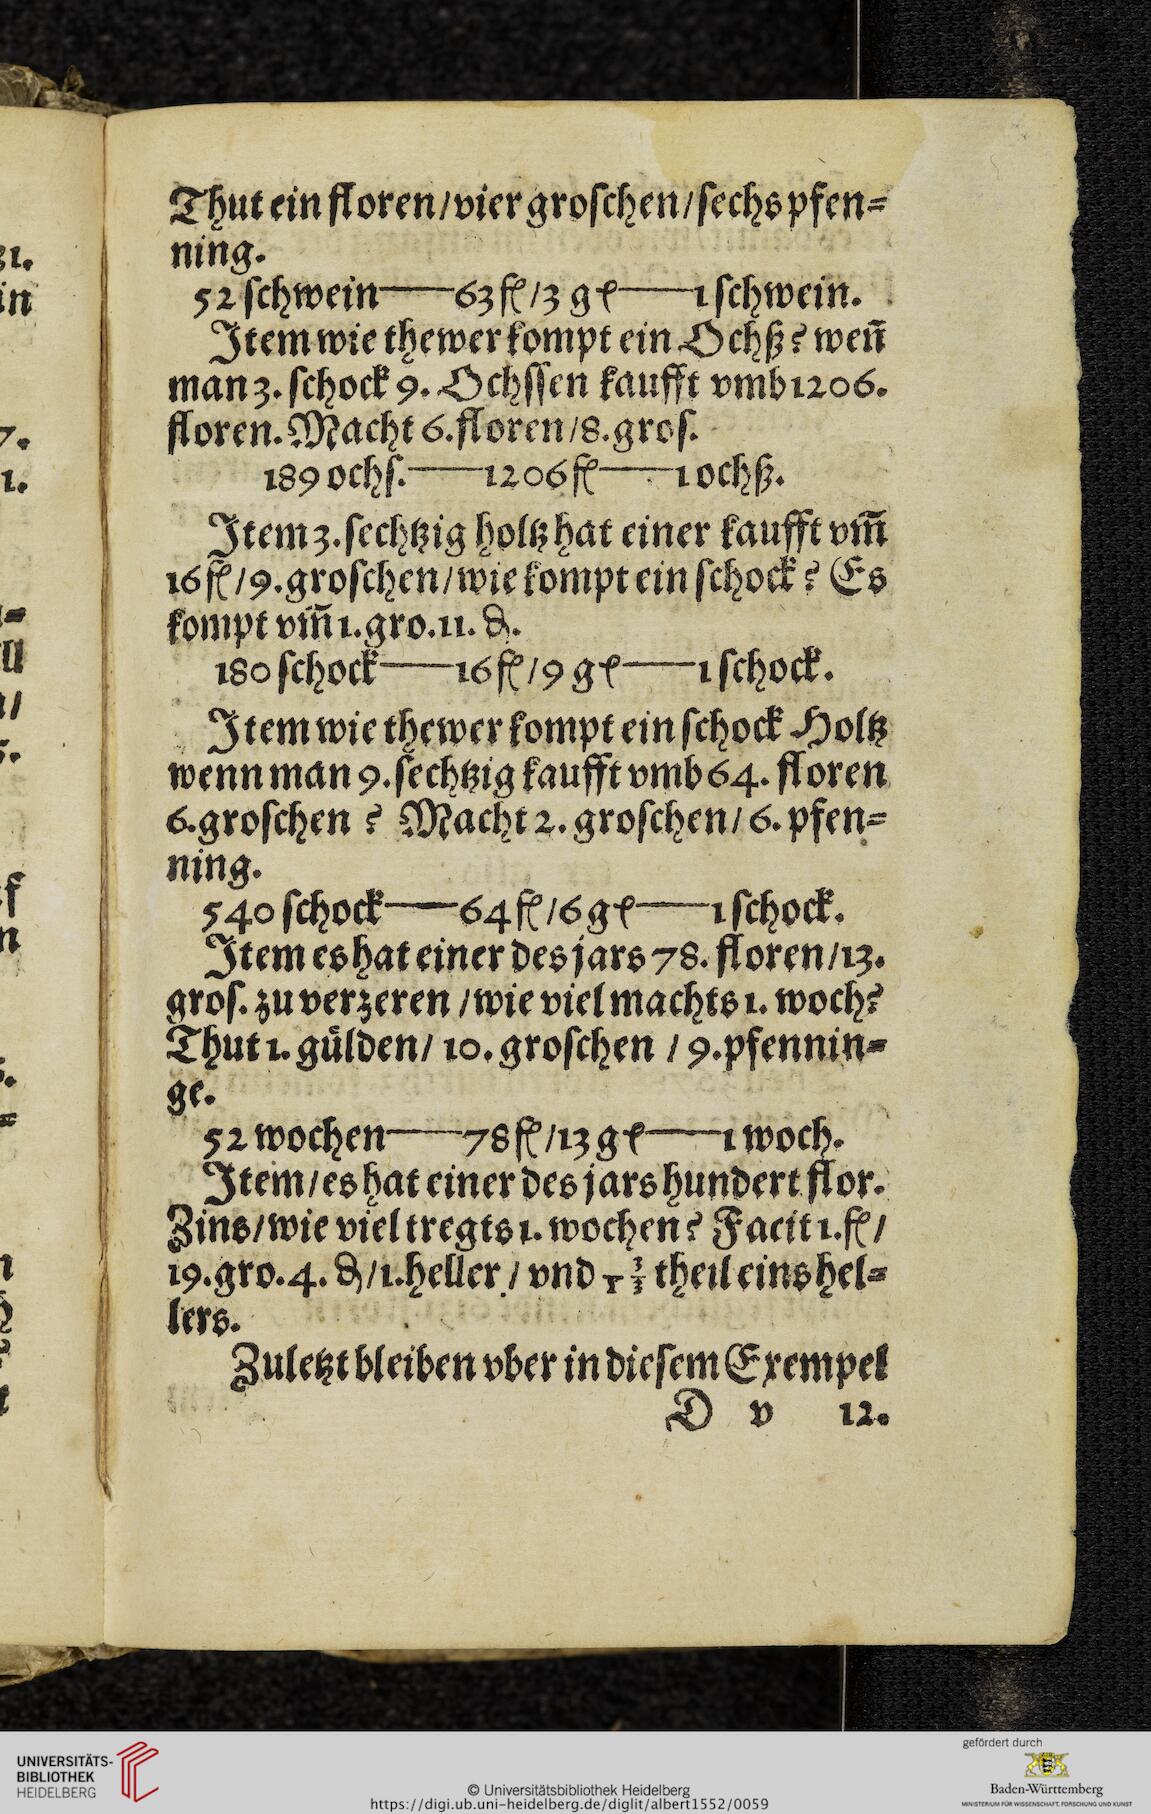 Thut ein floren/vier groschen/sechs pfen=
ning.
52 schwein——63 fl/3 gr——1 schwein.
Item wie thewer kompt ein Ochß? weñ
man 3. schock 9. Ochssen kaufft vmb 1206.
floren. Macht 6. floren/8. gros.
189 ochs.——1206 fl——1 ochß.
Item 3. sechtzig holtz hat einer kaufft vm̃
16 fl/9. groschen/wie kompt ein schock? Es
kompt vm̃ 1. gro. 11. ₰.
180 schock——16 fl/9 gr——1 schock.
Item wie thewer kompt ein schock Holtz
wenn man 9. sechtzig kaufft vmb 64. floren
6. groschen? Macht 2. groschen/6. pfen=
ning.
540 schock——64 fl/6 gr——1 schock.
Item es hat einer des jars 78. floren/13.
gros. zu verzeren/wie viel machts 1. woch?
Thut 1. gůlden/10. groschen/9. pfennin=
ge.
52 wochen——78 fl/13 gr——1 woch.
Item/es hat einer des jars hundert flor.
Zins/wie viel tregts 1. wochen? Facit 1. fl/
19. gro. 4. ₰/1. heller/vnd theil eins hel=
lers.
Zuletzt bleiben vber in diesem Exempel
D v 12.
31.
in
7.
1.
UNIVERSITÄTS-
BIBLIOTHEK
HEIDELBERG
© Universitätsbibliothek Heidelberg
https://digi.ub.uni-heidelberg.de/diglit/albert1552/0059
gefördert durch
Baden-Württemberg
MINISTERIUM FÜR WISSENSCHAFT, FORSCHUNG UND KUNST